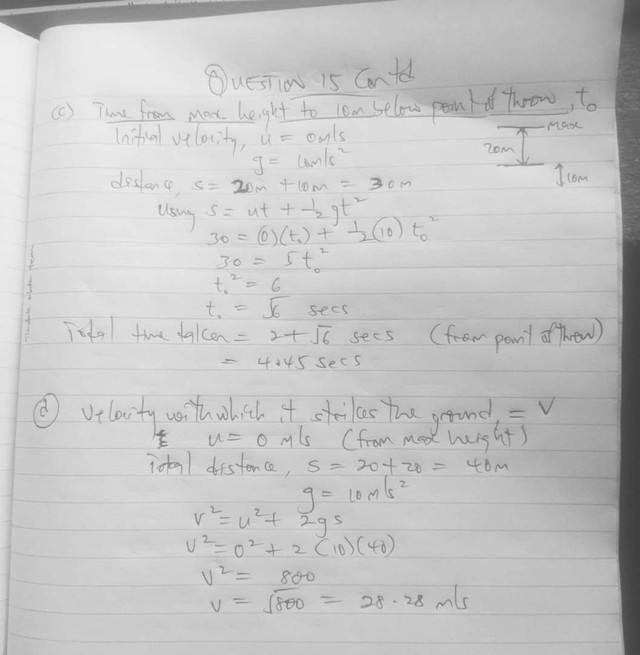 QUESTION 15 Contd
(c) Time from max height to 10m below point of throw, t₀
Initial velocity, u = 0m/s
g = 10m/s²
Max
20m
10m
distance, s = 20m + 10m = 30m
Using s = ut + ½gt²
30 = (0)(t₀) + ½(10) t₀²
30 = 5t₀²
t₀² = 6
t₀ = √6 secs
Total time taken = 2+√6 secs (from point of throw)
= 4.45 secs
(d) Velocity with which it strikes the ground, = V
u = 0 m/s (from max height)
Total distance, s = 20+20 = 40m
g = 10m/s²
v² = u² + 2gs
v² = 0² + 2(10)(40)
v² = 800
v = √800 = 28.28 m/s